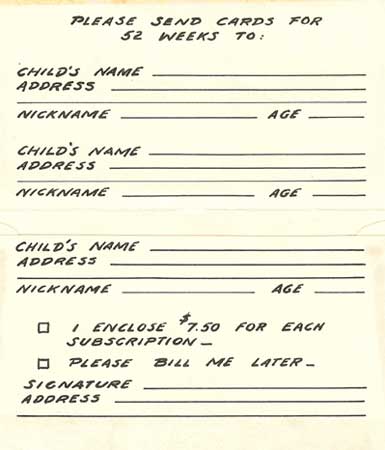 PLEASE SEND CARDS FOR
52 WEEKS TO:
CHILD'S NAME
ADDRESS
NICKNAME AGE
CHILD'S NAME
ADDRESS
NICKNAME AGE
CHILD'S NAME
ADDRESS
NICKNAME AGE
I ENCLOSE $7.50 FOR EACH
SUBSCRIPTION_
PLEASE BILL ME LATER_
SIGNATURE
ADDRESS